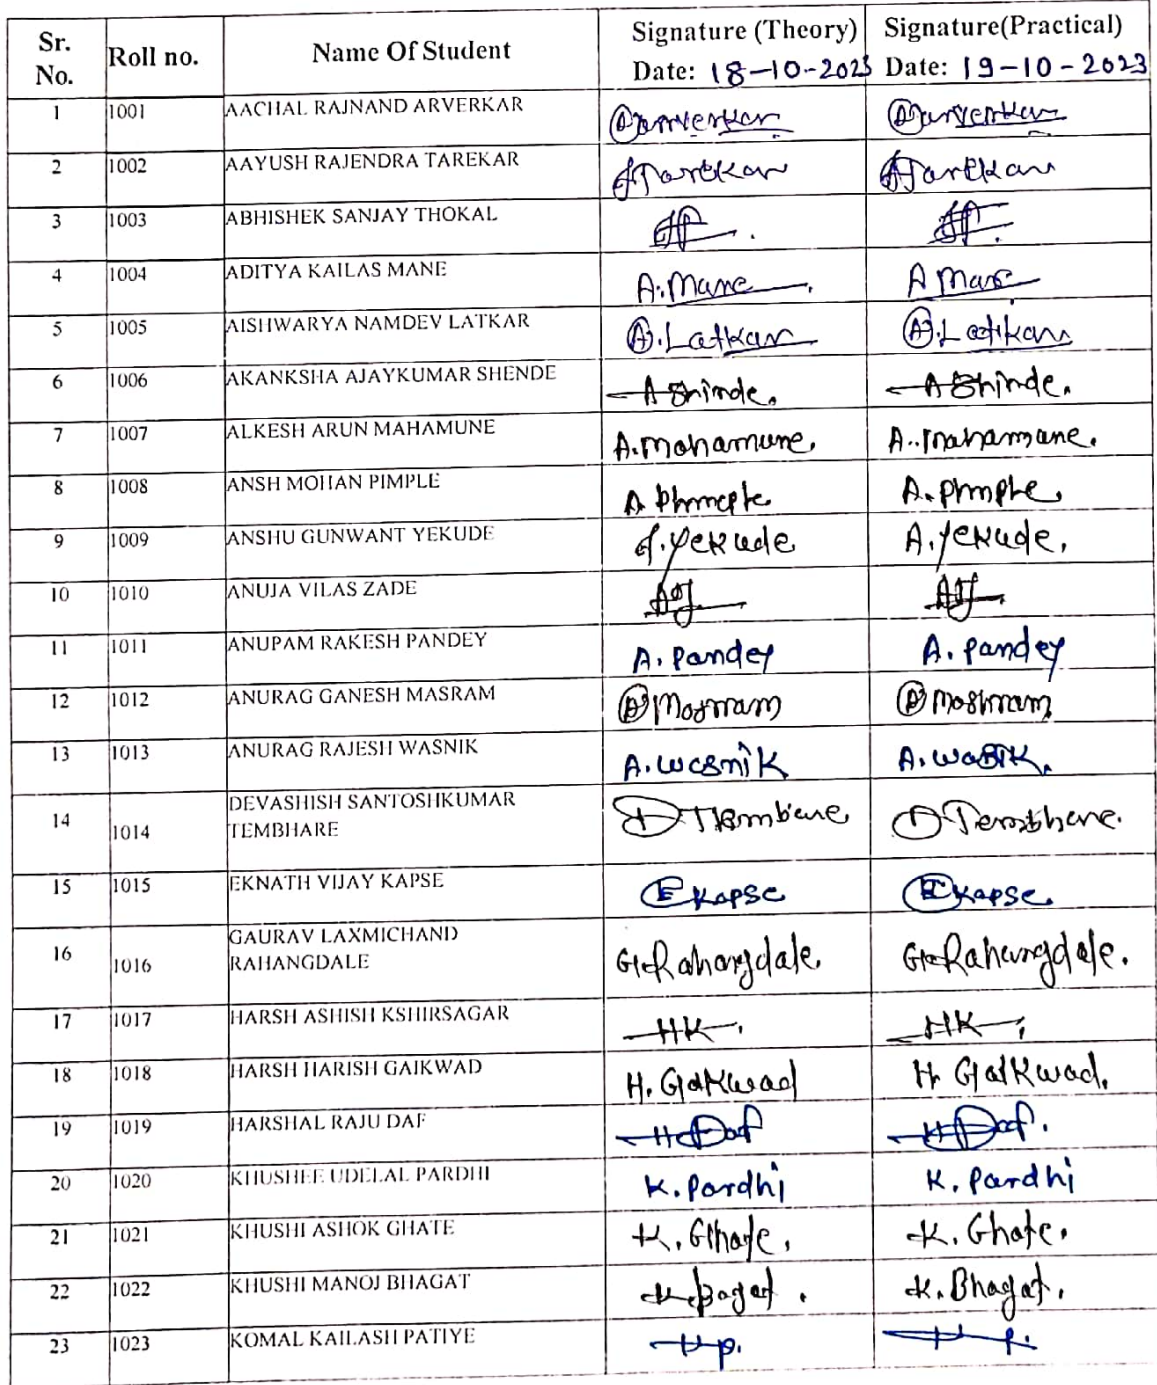 Sr. No. Roll no. Name Of Student Signature (Theory) Date: 18-10-2023 Signature(Practical) Date: 19-10-2023
1 1001 AACHAL RAJNAND ARVERKAR
2 1002 AAYUSH RAJENDRA TAREKAR Tarekar Tarekar
3 1003 ABHISHEK SANJAY THOKAL
4 1004 ADITYA KAILAS MANE A.Mane A Mane
5 1005 AISHWARYA NAMDEV LATKAR A.Latkar A.Latikar
6 1006 AKANKSHA AJAYKUMAR SHENDE A Shinde. A Shinde.
7 1007 ALKESH ARUN MAHAMUNE A.mahamune. A..mahamune.
8 1008 ANSH MOHAN PIMPLE A. pimple.
9 1009 ANSHU GUNWANT YEKUDE A.yekude A.yekude.
10 1010 ANUJA VILAS ZADE
11 1011 ANUPAM RAKESH PANDEY A. pandey A. pandey
12 1012 ANURAG GANESH MASRAM A Masram A masram
13 1013 ANURAG RAJESH WASNIK A.wasnik A.wasik.
14 1014 DEVASHISH SANTOSHKUMAR TEMBHARE D Tembhare.
15 1015 EKNATH VIJAY KAPSE E Kapse E Kapse.
16 1016 GAURAV LAXMICHAND RAHANGDALE G.Rahangdale. G.Rahangdale.
17 1017 HARSH ASHISH KSHIRSAGAR HK. HK.
18 1018 HARSH HARISH GAIKWAD H. Gaikwad H. Gaikwad.
19 1019 HARSHAL RAJU DAF H Daf H Daf.
20 1020 KHUSHEE UDELAL PARDHI K. Pardhi K. Pardhi
21 1021 KHUSHI ASHOK GHATE K. Ghate. K. Ghate.
22 1022 KHUSHI MANOJ BHAGAT K.Bagat. K. Bhagat.
23 1023 KOMAL KAILASH PATIYE K p. K p.